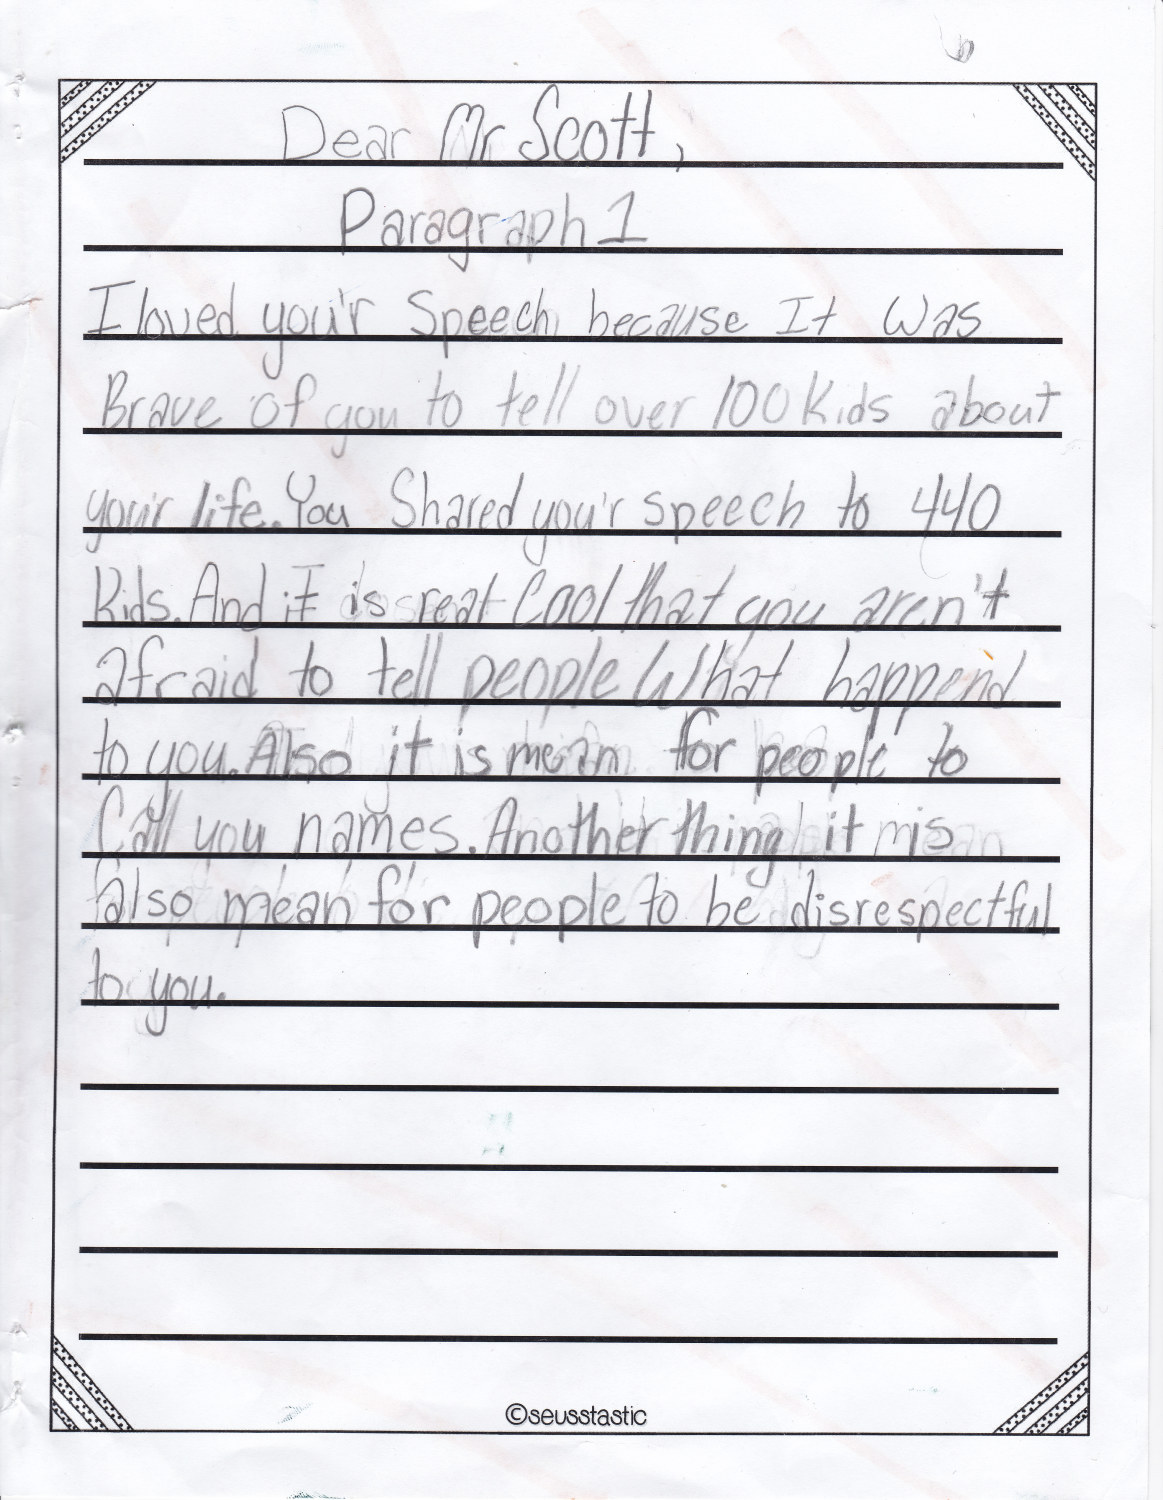 Dear Mr Scott,
Paragraph 1
I loved you'r Speech because It was
Brave of you to tell over 100 kids about
you'r life. You Shared you'r speech to 440
kids. And it is reat Cool that you aren't
afraid to tell people What happend
to you. Also it is mean for people to
Call you names. Another thing it is
also mean for people to be disrespectful
to you.
©seusstastic